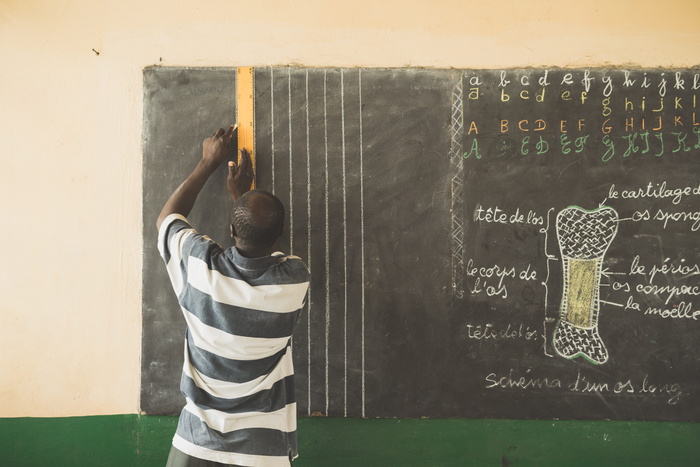 a b c d e f g h i j k l
a b c d e f g h i j k l
A B C D E F G H I J K L
A E D E F G H I J K
le cartilage d
tête de l'os
os spong
le corps de
l'os
le périos
os compac
la moëlle
tête de l'os
Schéma d'un os long